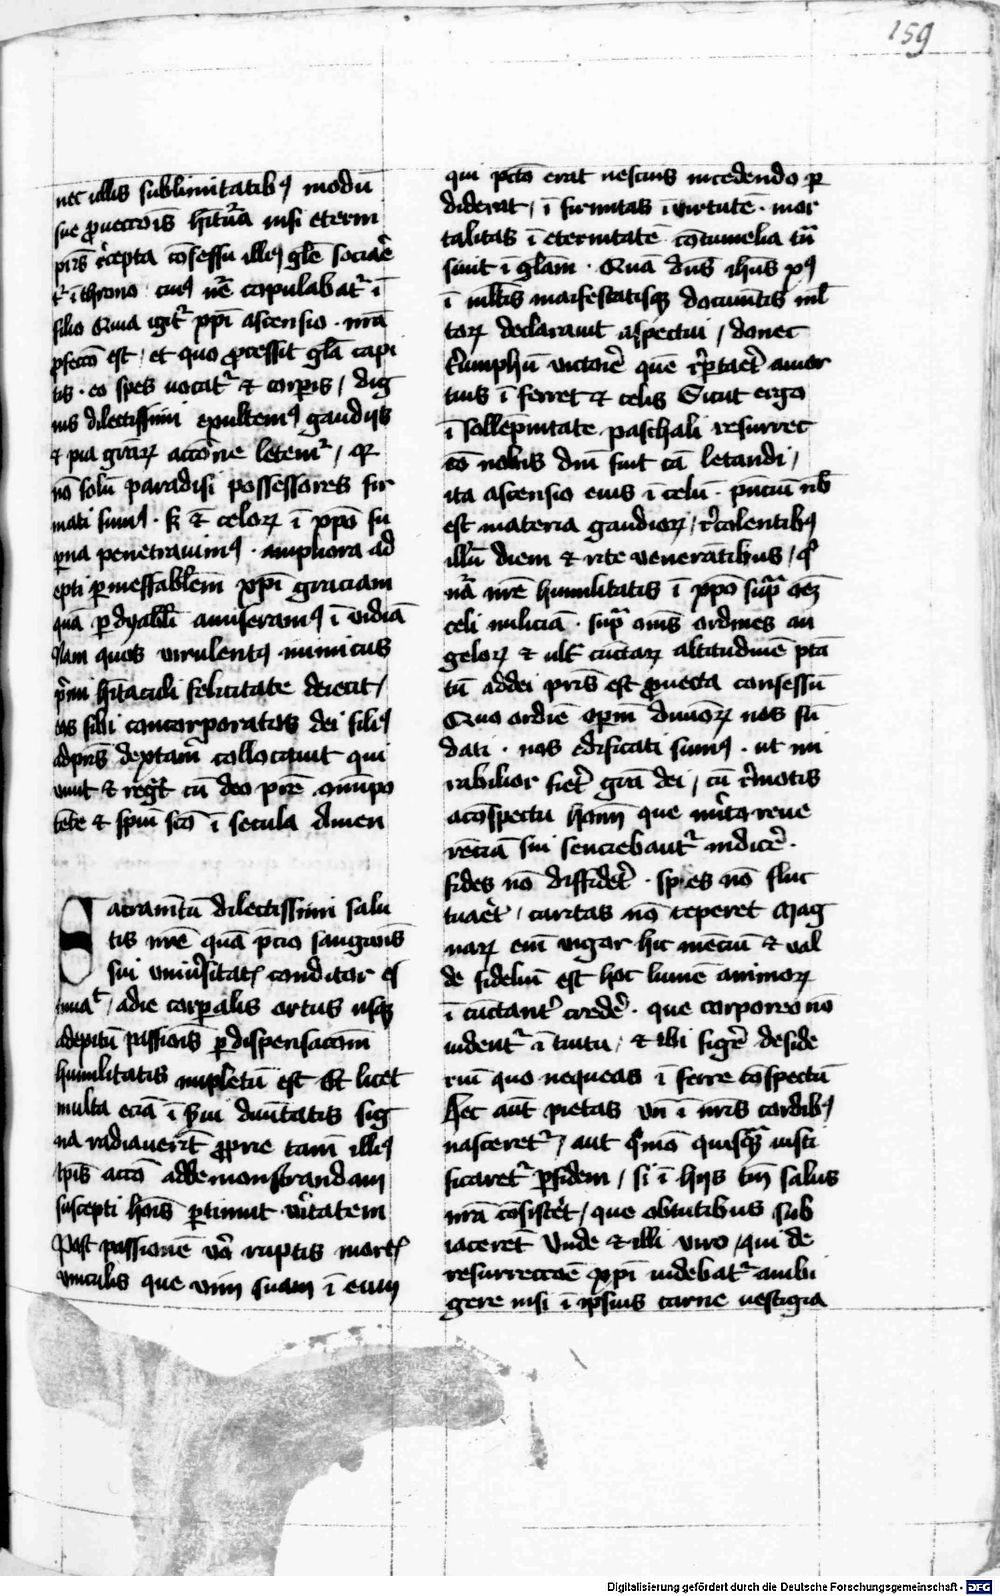 159
nec ullis sublimitatibꝯ modū
sue ꝓuecc̄ōis hītura nisi eterni
pr̄is r̄cepta cōsessu illiꝯ gl̄e sociaret̄
ī throno cuiꝯ nr̄e copulabatᷣ ī
filio Quia igitᷣ xp̄i ascensio nr̄a
ꝓfecc̄o est / et quo ꝓcessit gl̄a capi
tis · eo spes uocatᷣ & corpis / dig
nis dilectissimi exultemꝯ gaudijs
& pia gr̄aꝝ acc̄one letemᷣ / qꝛ
nō solū paradisi possessores fir
mati sumꝯ · & celoꝝ ī xp̄o su
perna penetrauimꝯ · ampliora ad
epti ꝑ ineffabilem xp̄i graciam
quā ꝑ dyaboli amiseramꝯ īuidiā
Nam quos virulentꝯ inimicus
p̄mi hītaculi felicitate deiecit /
eos sibi concorporatos dei filiꝯ
ad pr̄is dextam̄ collocauit qui
viuit & regt̄ cū deo pr̄e omnipo
tēte & spū sc̄o ī secula amen
Sacramētū dilectissimi salu
tis nr̄e quā p̄cio sanguinis
sui vniūsitatꝭ conditor es
timat / a die corꝑalis ortus usqꝫ
ad exitū passionis ꝑ dispensac̄om
humilitatis impletū est Et licet
multa eciā ī ẜui diuītatis sig
na radiauerīt ꝓprie tam̄ illiꝯ
tp̄is acc̄o ad demonstrandam
suscepti hoīs ꝑtinuit v̄itatem
Post passionē v̄o ruptis mortꝭ
vinculis que vim suam ī eum
qui pc̄co erat nescius incedendo ꝑ
diderat / ī firmitas ī virtutē · mor
talitas ī eternitatē cōtumelia t̄
siuit ī gl̄am · Quā dn̄s ih̄us xp̄ꝯ
ī mltis maifestatisqꝫ documētis ml̄
torꝝ declarauit aspectui / donec
t̄umphū victorie quē r̄portaūat a mor
tuis ī ferret & celis Sicut ergo
ī sollempnitate paschali resurrec
c̄o nobis dn̄i fuit cā letandi /
ita ascensio eius ī celū · p̄nciū nb̄
est materia gaudioꝝ / r̄colentibꝯ
illū diem & rite venerātibus / q̄
nā nr̄e humilitatis ī xp̄o supᷓ oēꝫ
celi miliciā · supᷓ oīs ordines an
geloꝝ & ult̄ cūctaꝝ altitudinē pt̄a
tū ad dei pr̄is est ꝓuecta consessū
Quo ordīe operū diuinoꝝ nos fū
dati · nos edificati sumꝯ · ut mi
rabilior fiet̄ gr̄a dei / cū r̄motis
a cōspectu hoīm que m̄ito reue
rēciā sui senciebantᷣ indice̅ ·
fides nō diffidet̄ · spes nō fluc
tuaēt / caritas nō teperet Mag
narꝝ em̄ vigor hic menciū & val
de fideliū est hoc lumē animoꝝ
īcūctantᷣ crede̅ · que corporeo nō
uidentᷣ ītuitu / & ibi fige̅ deside
riū quo nequeas īferre cōspectū
Hec aūt pietas vn̄ ī nr̄is cordibꝯ
nasceretᷣ / aut quōmō quisqᷓ iusti
ficaretᷣ ꝑ fidem / si ī hijs tm̄ salus
nr̄a cōsistet̄ / que obtutibus sub
iaceret̄ Unde & illi viro / qui de
resurrecc̄oe xp̄i uidebatᷣ ambi
gere nisi ī ipsius carne uestigia
Digitalisierung gefördert durch die Deutsche Forschungsgemeinschaft - DFG